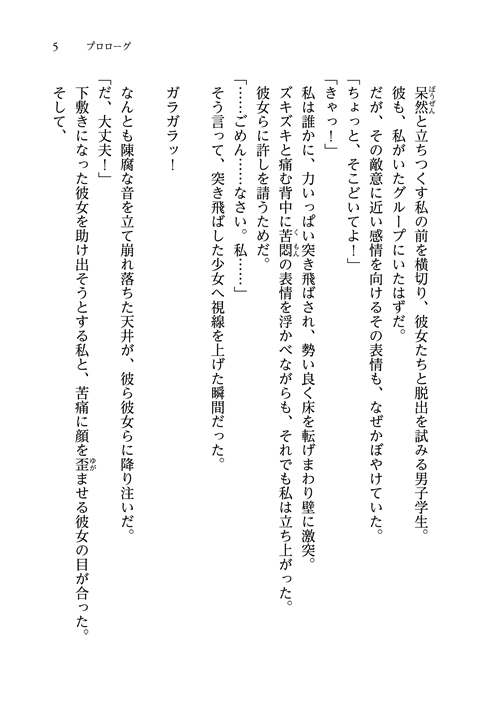 5 プロローグ
呆然と立ちつくす私の前を横切り、彼女たちと脱出を試みる男子学生。
彼も、私がいたグループにいたはずだ。
だが、その敵意に近い感情を向けるその表情も、なぜかぼやけていた。
「ちょっと、そこどいてよ！」
「きゃっ！」
私は誰かに、力いっぱい突き飛ばされ、勢い良く床を転げまわり壁に激突。
ズキズキと痛む背中に苦悶の表情を浮かべながらも、それでも私は立ち上がった。
彼女らに許しを請うためだ。
「……ごめん……なさい。私……」
そう言って、突き飛ばした少女へ視線を上げた瞬間だった。
ガラガラッ！
なんとも陳腐な音を立て崩れ落ちた天井が、彼ら彼女らに降り注いだ。
「だ、大丈夫！」
下敷きになった彼女を助け出そうとする私と、苦痛に顔を歪ませる彼女の目が合った。
そして、